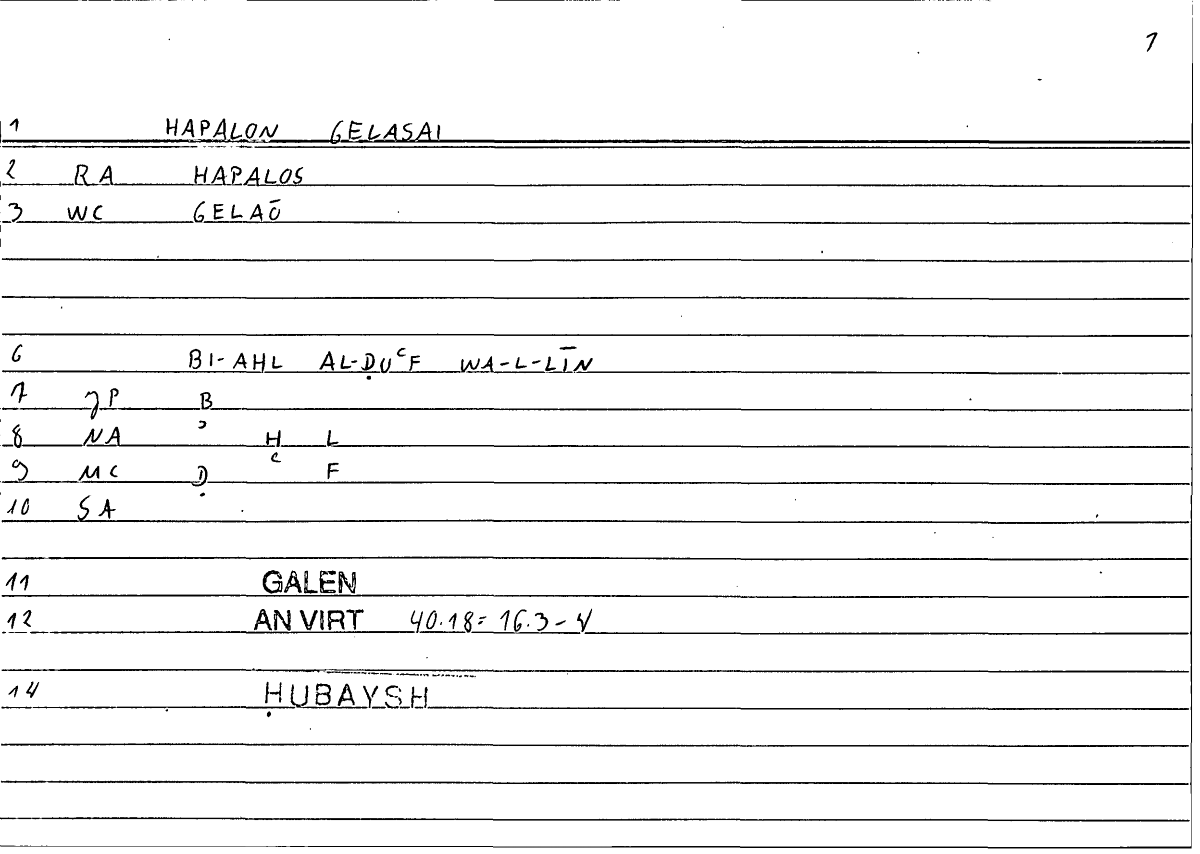 1
1 HAPALON GELASAI
2 RA HAPALOS
3 WC GELAŌ
6 BI-AHL AL-ḌUᶜF WA-L-LĪN
7 JP B
8 NA ʾ H L
9 MC Ḍ ᶜ F
10 SA
11 GALEN
12 AN VIRT 40.18= 16.3-4
14 ḤUBAYSH